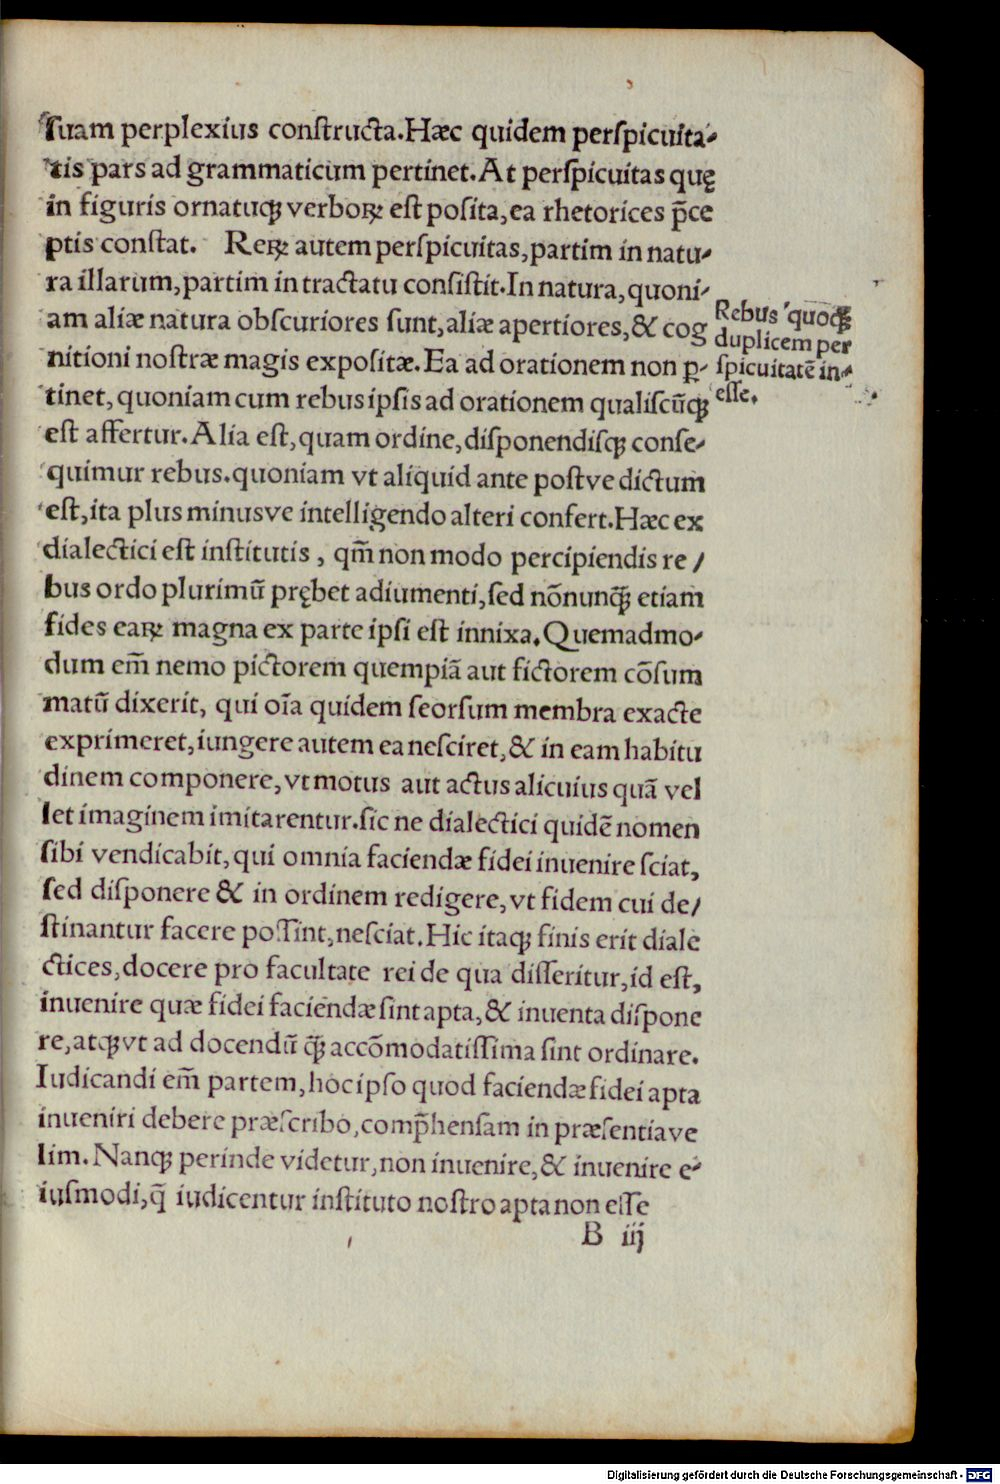 ſuam perplexius conſtructa.Hæc quidem perſpicuita-
tis pars ad grammaticum pertinet.At perſpicuitas quę
in figuris ornatuqꝫ verboꝝ eſt poſita,ea rhetorices p̄ce
ptis conſtat. Reꝝ autem perſpicuitas,partim in natu-
ra illarum,partim in tractatu conſiſtit.In natura,quoni-
am aliæ natura obſcuriores ſunt,aliæ apertiores,& cog
nitioni noſtræ magis expoſitæ.Ea ad orationem non ꝑ-
tinet,quoniam cum rebus ipſis ad orationem qualiſcūqꝫ
eſt affertur.Alia eſt,quam ordine,diſponendiſqꝫ conſe-
quimur rebus.quoniam vt aliquid ante poſtve dictum
eſt,ita plus minusve intelligendo alteri confert.Hæc ex
dialectici eſt inſtitutis, qm̄ non modo percipiendis re/
bus ordo plurimū prębet adiumenti,ſed nōnunqꝫ̄ etiam
fides eaꝝ magna ex parte ipſi eſt innixa.Quemadmo-
dum em̄ nemo pictorem quempiā aut fictorem cōſum
matū dixerit, qui oīa quidem ſeorſum membra exacte
exprimeret,iungere autem ea neſciret,& in eam habitu
dinem componere,vt motus aut actus alicuius quā vel
let imaginem imitarentur.ſic ne dialectici quidē nomen
ſibi vendicabit,qui omnia faciendæ fidei inuenire ſciat,
ſed diſponere & in ordinem redigere,vt fidem cui de/
ſtinantur facere poſſint,neſciat.Hic itaqꝫ finis erit diale
ctices,docere pro facultate rei de qua diſſeritur,id eſt,
inuenire quæ fidei faciendæ ſint apta,& inuenta diſpone
re,atqꝫ vt ad docendū qꝫ̄ accōmodatiſſima ſint ordinare.
Iudicandi em̄ partem,hoc ipſo quod faciendæ fidei apta
inueniri debere præſcribo,comp̄henſam in præſentia ve
lim.Nanqꝫ perinde videtur,non inuenire,& inuenire e-
iuſmodi,q̄ iudicentur inſtituto noſtro apta non eſſe
B iij
Rebus quoqꝫ
duplicem per
ſpicuitatē in-
eſſe.
Digitalisierung gefördert durch die Deutsche Forschungsgemeinschaft - DFG